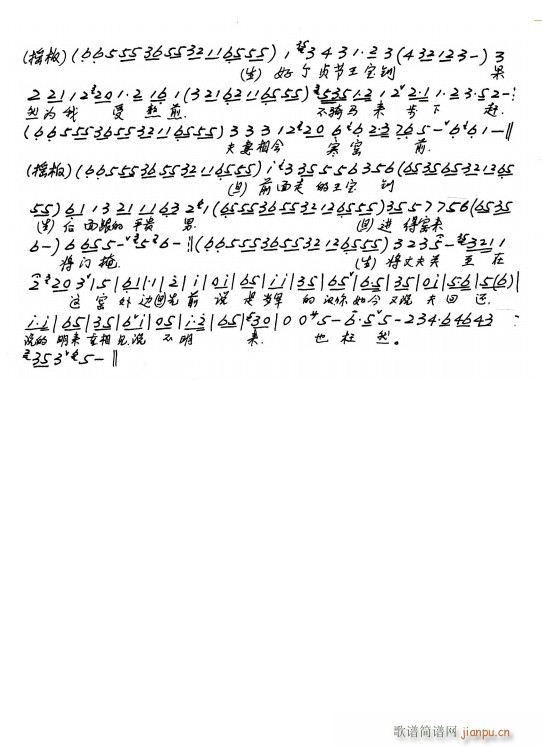 (摇板) (6 6 5 5 5 3 6 5 5 3 2 1 1 6 5 5 5) 1 3 4 3 1 · 2 3 (4 3 2 1 2 3 -) 3
(生) 好个贞节王宝钏 果
2 2 1 1 2 2 0 1 · 2 1 6 1 (3 2 1 6 2 1 1 6 5 5 5) 5 3 5 1 2 1 2 2 · 1 1 · 2 3 · 5 2 -
然为我 受熬煎 不骑马来步下赶
(6 6 5 5 3 6 5 5 3 2 1 1 6 5 5 5) 3 3 3 1 2 2 0 6 6 2 3 7 6 5 - 6 6 1 - ‖
夫妻相会 寒窑 前
(摇板) (6 6 5 5 5 3 6 5 5 3 2 1 1 6 5 5 5) i 3 3 5 5 5 6 3 5 6 (6 5 3 5 6 5 3 2 1 3 6 5
(旦) 前面走的王宝钏
5 5) 6 1 1 3 2 1 1 6 3 2 1 (6 5 5 5 3 6 5 5 3 2 1 2 6 5 5 5) 3 5 5 7 7 5 6 (6 5 3 5
(生) 后面跟的平贵男 (旦) 进得窑来
6 -) 6 6 5 5 - 5 6 - ‖ (6 6 5 5 5 3 6 5 5 3 2 1 2 6 5 5 5) 3 2 3 5 - 3 2 1 1
将门掩 (生) 将丈夫关至在
2 2 0 3 | 5 | 6 1 | · 1 | 2 | i | 0 i | 6 5 | i i | 3 5 | 6 5 | 6 · 5 | 3 5 | 0 i | 5 · 6 | 5 (6) |
这窑外边 (旦) 先前说是 的汉 你如今又说夫回还
i · i | 6 5 | 3 5 | 6 i | 0 5 | i · 2 | 6 5 | 3 0 | 0 0 5 - 6 · 5 5 - 2 3 4 · 6 4 6 4 3
说的明来 相见 说不明 来 也枉然。
3 5 3 5 - ‖
歌谱简谱网
jianpu.cn